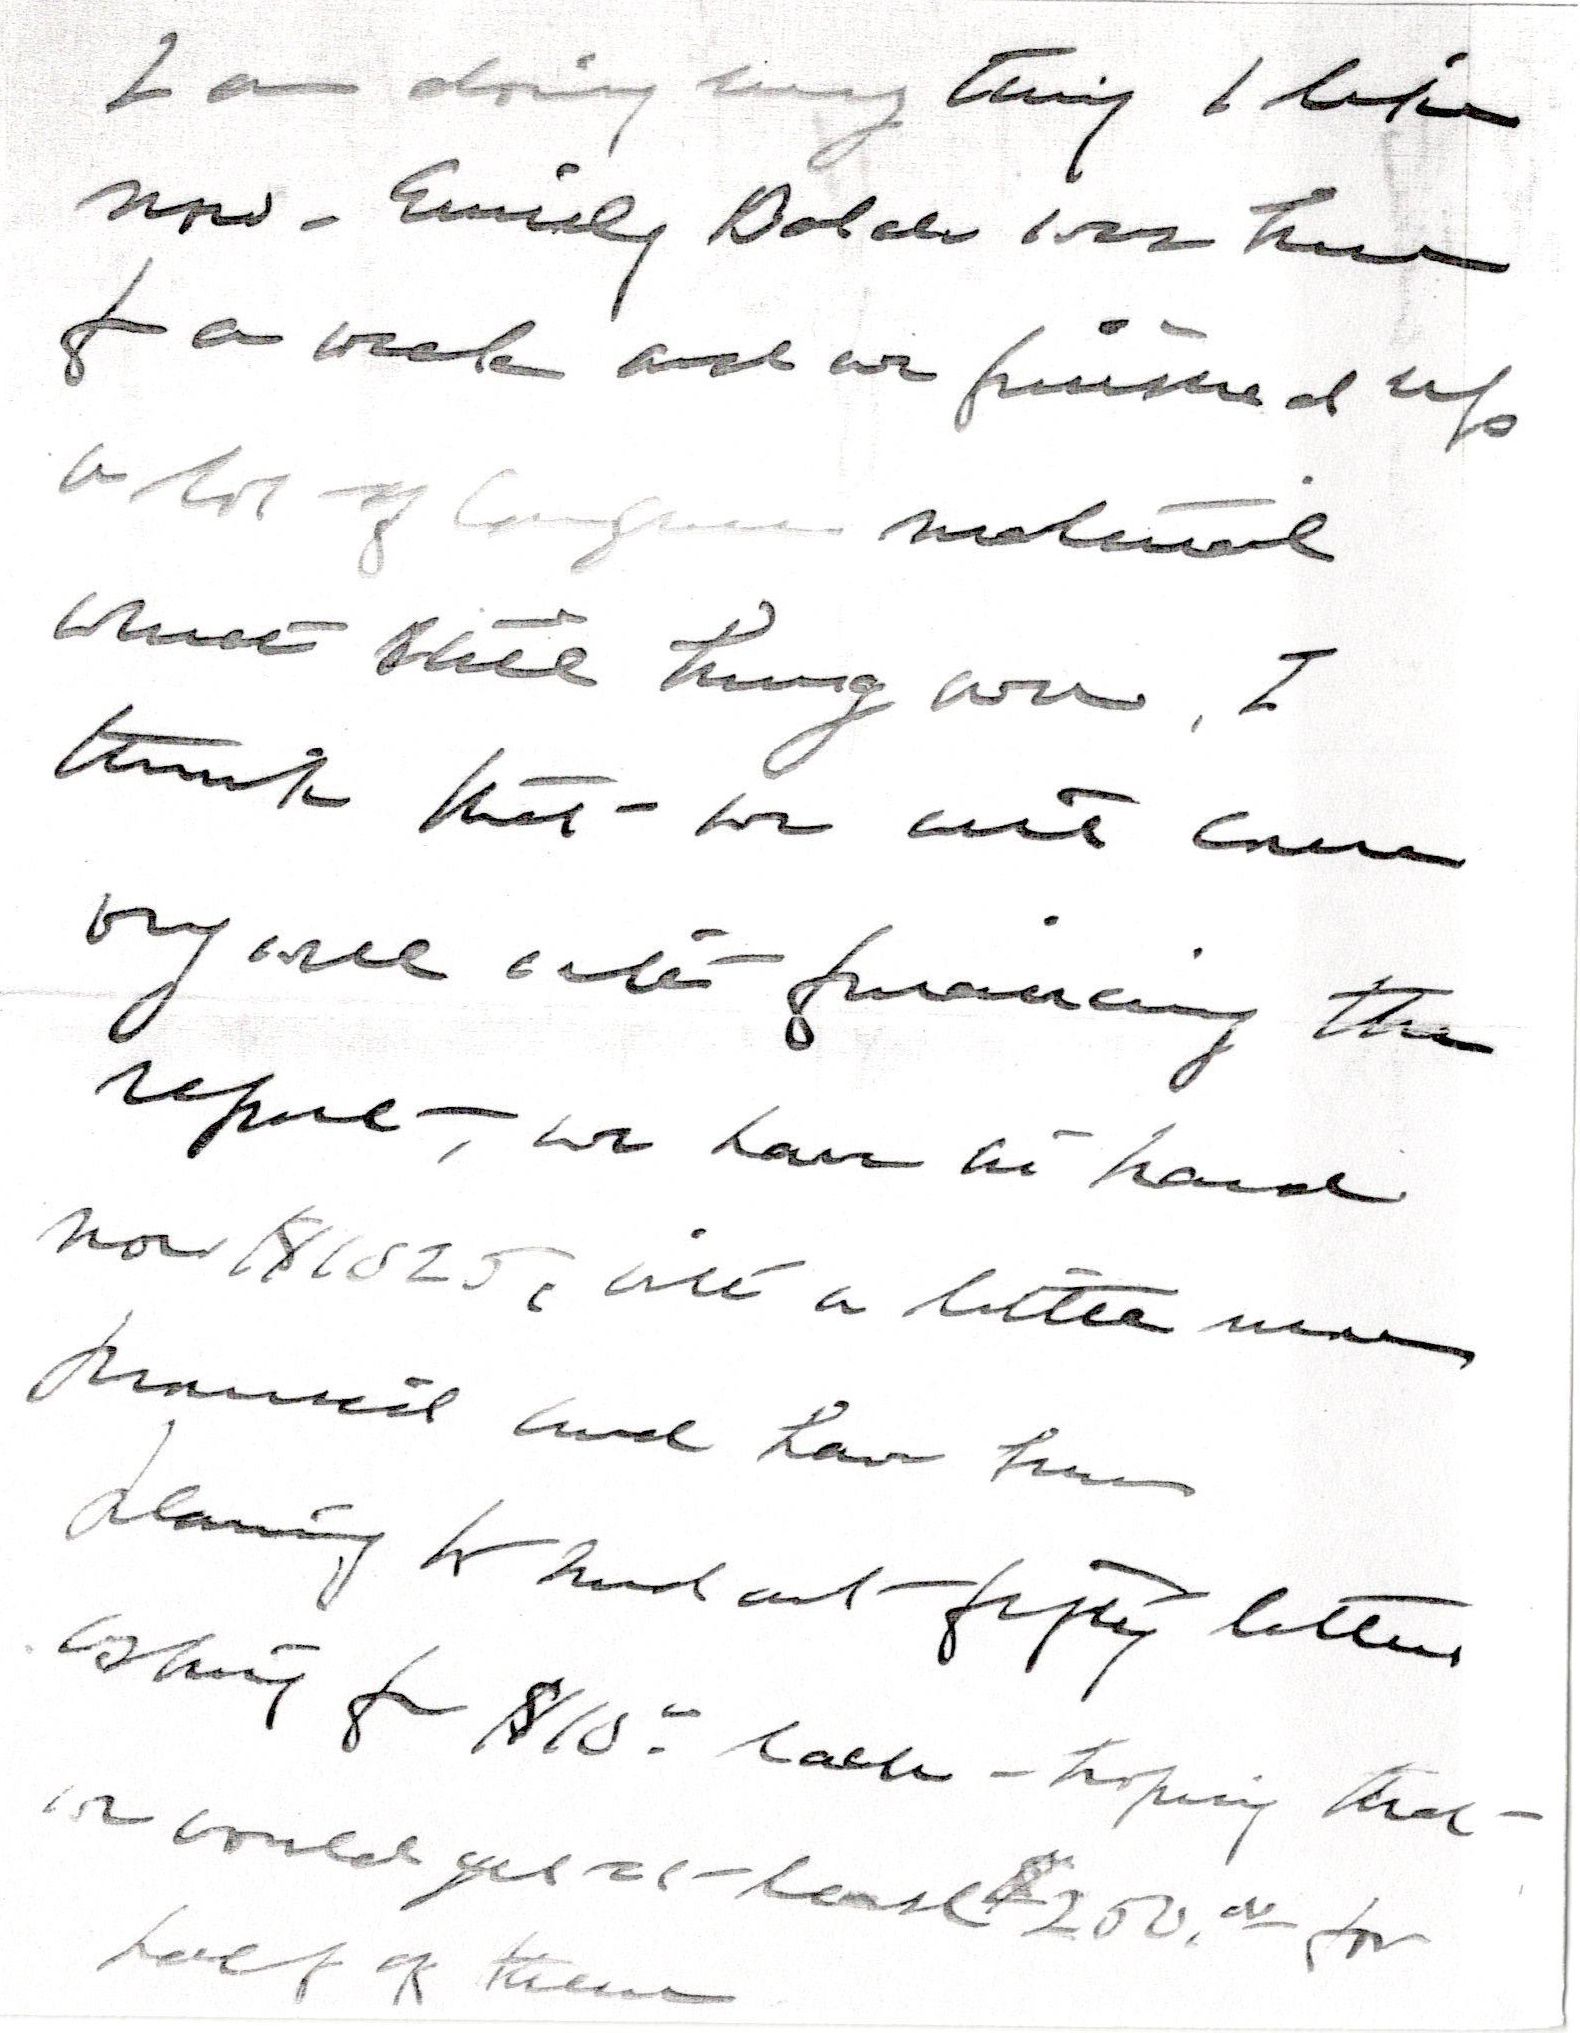 I am doing every thing I like
now - Emily Dolde was here
for a week and we finished up
a lot of Congress material
which still hung over, I
think that - we will come
very well with financing the
report, we have at hand
now $1025, with a little more
promised and have here
planning to send out - fifty letters
asking for $10.- each - hoping that -
we would get at - least $250.00 for
half of them